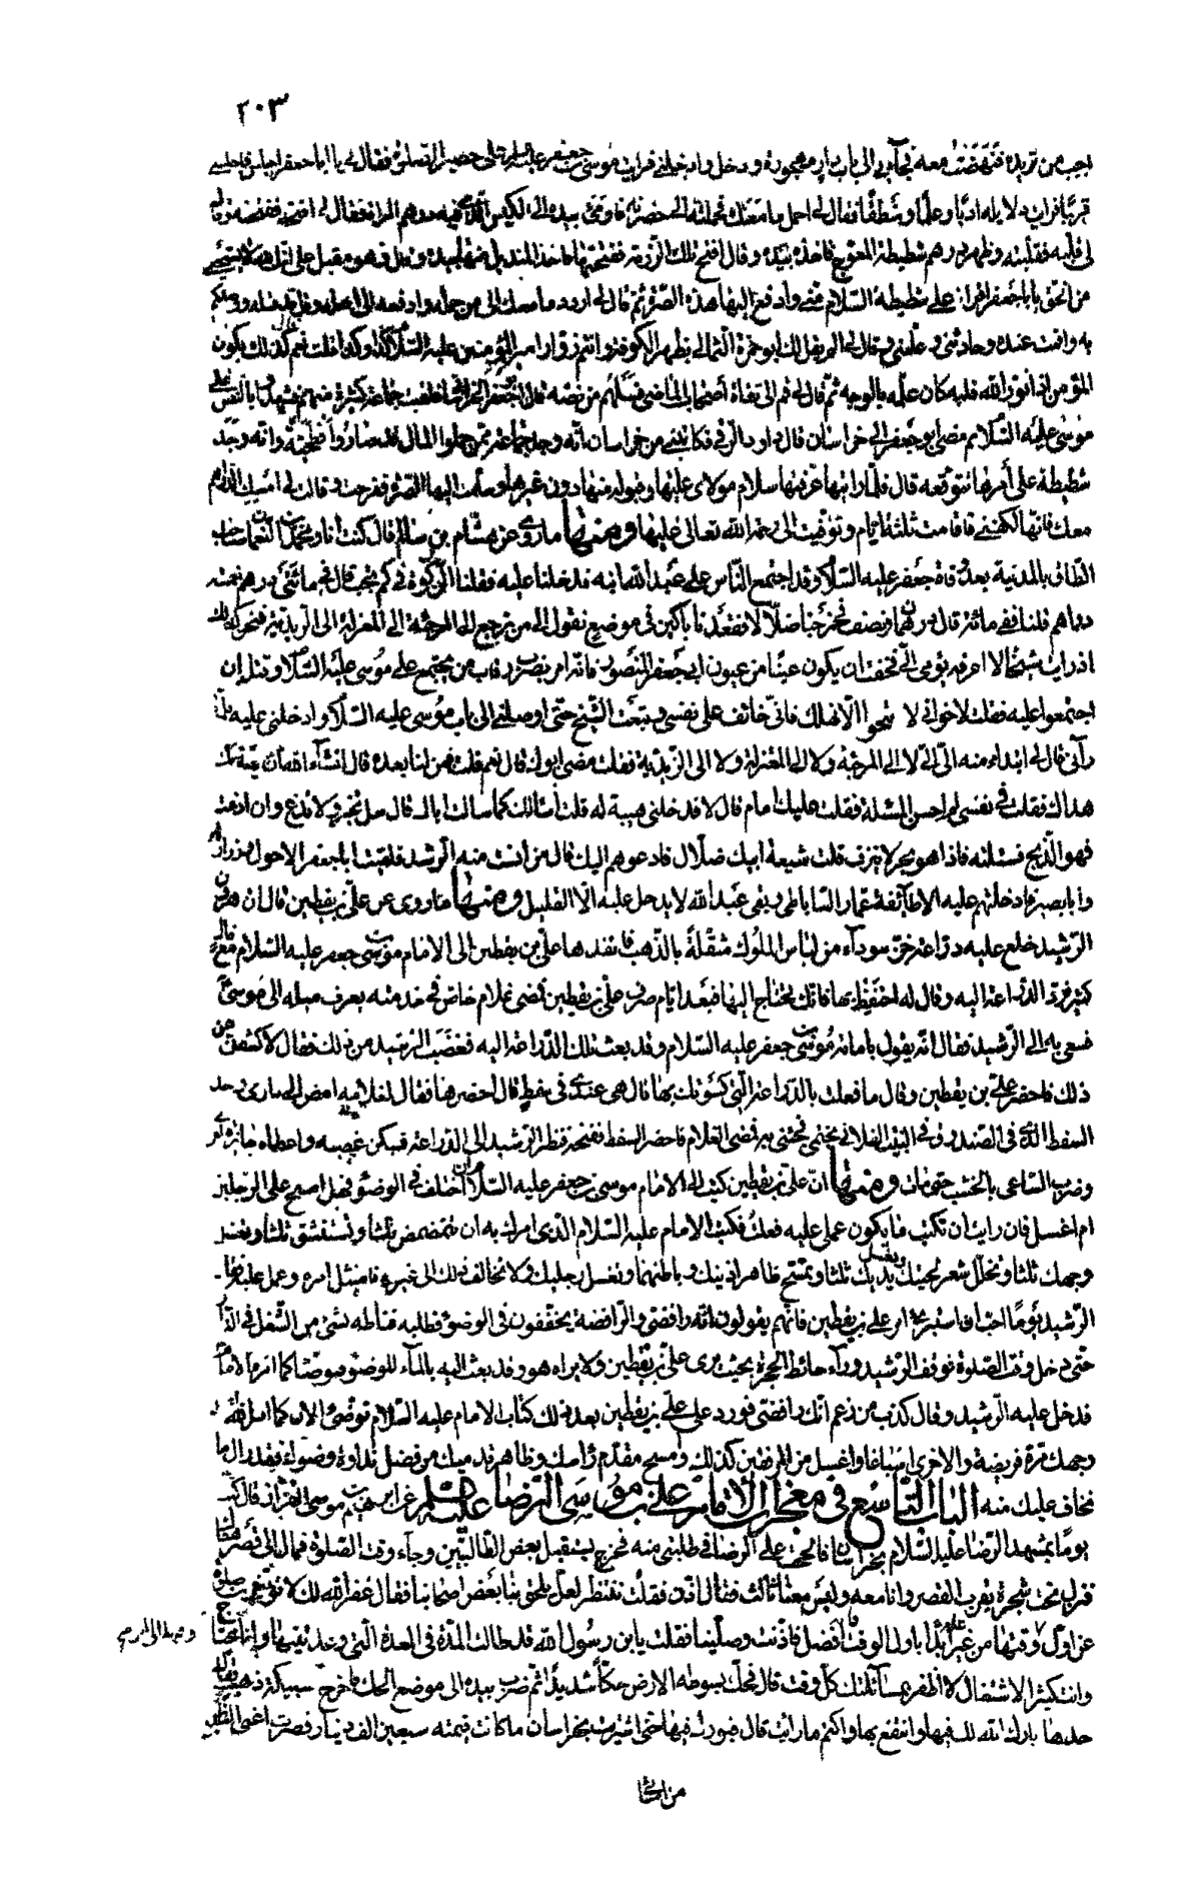 ٢٠٣
اجب من تريده فنهضت معه فجاء بي الى باب دار مهجورة ودخل وادخلني فرايت موسى بن جعفر عليه السلم على حصير الصلوة فقال لي يا ابا جعفر اجلس فاجلسني
قريبا فرايت دلايله ادبا وعلما ومنطقا فقال لي احمل ما معك فحملته الى حضرته فاومى بيده الى الكيس الذي فيه درهم المراة فقال لي افتحه ففتحته وقال
لي اقلبه فقلبته وظهر درهم شطيطة المعوج فاخذه بيده وقال افتح تلك الرزمة ففتحتها فاخذ المنديل منها بيده وقال وهو مقبل على ان الله لا يستحيي
من الحق يا ابا جعفر اقرا على شطيطة السلام مني وادفع اليها هذه الصرة ثم قال لي اردد ما معك الى من حمله وادفعه الى اهله وقل قد قبله ووصلكم
به واقمت عنده وحادثني وعلمني وقال لي الم يقل لك ابو حمزة الثمالي بظهر الكوفة وانتم زوار امير المؤمنين عليه السلام كذا وكذا قلت نعم قال كذلك يكون
المؤمن اذا نور الله قلبه كان علمه بالوجه ثم قال لي قم الى ثقاة اصحاب الماضي فسلهم عن نصه قال ابو جعفر الخراساني فلقيت جماعة كثيرة منهم شهدوا بالنص على
موسى عليه السلام ثم مضى ابو جعفر الى خراسان قال داود الرقي فكاتبني من خراسان انه وجد جماعة ممن حملوا المال قد صاروا فطحية وانه وجد
شطيطة على امرها تتوقعه قال فلما رايتها عرفتها سلام مولاي عليها وقبوله منها دون غيرها وسلمت اليها الصرة ففرحت وقالت لي امسك الدراهم
معك فانها لكفني فاقامت ثلثة ايام وتوفيت الى رحمة الله تعالى عليها ومنها ما روى عن هشام بن سالم قال كنت انا ومحمد بن النعمان صاحب
الطاق بالمدينة بعد وفاة جعفر عليه السلام وقد اجتمع الناس على عبد الله ابنه فدخلنا عليه فقلنا الزكوة في كم تجب قال في مائتي درهم خمسة
دراهم قلنا ففي مائة قال درهمان ونصف فخرجنا ضلالا فقعدنا باكين في موضع نقول الى من نرجع الى المرجئة الى المعتزلة الى الزيدية فنحن كذلك
اذ رايت شيخا لا اعرفه يومي الي فخفت ان يكون عينا من عيون ابي جعفر المنصور فانه امر بضرب رقاب من يجتمع على موسى عليه السلام وقتله ان
اجتمعوا عليه فقلت لاخواني لا تنحوا الا نهلك فاني خائف على نفسي وتبعت الشيخ حتى اوصلني الى باب موسى عليه السلام وادخلني عليه فلما
رآني قال لي ابتداء منه الي الي لا الى المرجئة ولا الى المعتزلة ولا الى الزيدية فقلت مضى ابوك قال نعم قلت فمن لنا بعده قال انشاء الله ان يهديك
هداك فقلت في نفسي لم احسن المسئلة فقلت عليك امام قال لا فدخلني هيبة له قلت اسالك كما سالت اباك قال سل تخبر ولا تذع وان اذعته
فهو الذبح فسئلته فاذا هو بحر لا ينزف قلت شيعة ابيك ضلال فادعوهم اليك قال من انست منه الرشد فلقيت ابا جعفر الاحول وزرارة
وابا بصير فادخلتهم عليه الا طائفة عمار الساباطي وبقي عبد الله لا يدخل عليه الا القليل ومنها ما روى عن علي بن يقطين قال ان هرون
الرشيد خلع عليه دراعة خز سوداء من لباس الملوك مثقلة بالذهب فانفذها علي بن يقطين الى الامام موسى بن جعفر عليه السلام مع مال
كثير فرد الدراعة اليه وقال له احتفظ بها فانك تحتاج اليها فبعد ايام صرف علي بن يقطين خصي غلام خاص في خدمته يعرف ميله الى موسى
فسعى به الى الرشيد فقال انه يقول بامامة موسى بن جعفر عليه السلام وقد بعث تلك الدراعة اليه فغضب الرشيد من ذلك فقال لاكشفن عن
ذلك فاحضر علي بن يقطين وقال ما فعلت بالدراعة التي كسوتك بها قال هي عندي في سفط قال احضرها فقال لغلامه امض الى داري وخذ
السفط الذي في الصندوق في البيت الفلاني بختمي فجئني به فمضى الغلام فاحضر السفط ففتحه فنظر الرشيد الى الدراعة فسكن غضبه واعطاه جائزة اخرى
وضرب الساعي بالخشب حتى مات ومنها ان علي بن يقطين كتب الى الامام موسى بن جعفر عليه السلام اختلف في الوضوء فهل امسح على الرجلين
ام اغسل فان رايت ان تكتب ما يكون عملي عليه فعلت فكتب الامام عليه السلام الذي امرك به ان تتمضمض ثلثا وتستنشق ثلثا وتغسل
وجهك ثلثا وتخلل شعر لحيتك وتغسل يديك ثلثا وتمسح ظاهر اذنيك وباطنهما وتغسل رجليك ولا تخالف ذلك الى غيره فامتثل امره وعمل عليه فقال
الرشيد يوما احب ان استبرئ امر علي بن يقطين فانهم يقولون انه رافضي والرافضة يخففون في الوضوء فطلبه فناطه بشئ من الشغل في الدار
حتى دخل وقت الصلوة فوقف الرشيد وراء حائط الحجرة بحيث يرى علي بن يقطين ولا يراه هو وقد بعث اليه بالماء للوضوء فتوضأ كما امره الامام
فدخل عليه الرشيد وقال كذب من زعم انك رافضي فورد على علي بن يقطين بعد ذلك كتاب الامام عليه السلام توضئ الان كما امر الله
وجهك مرة فريضة والاخرى اسباغا واغسل من المرفقين كذلك وامسح مقدم راسك وظاهر قدميك من فضل نداوة وضوئك فقد زال ما
يخاف عليك منه الباب التاسع في معجزات الامام علي بن موسى الرضا عليه السلم عن ابرهيم بن موسى القزاز قال كنت
يوما بمشهد الرضا عليه السلام بخراسان فالححت على الرضا في طلبتي منه فخرج يستقبل بعض الطالبيين وجاء وقت الصلوة فمال الى قصر هناك
فنزل تحت شجرة بقرب القصر وانا معه وليس معنا ثالث فقال اذن فقلت ننتظر لعل يلحق بنا بعض اصحابنا فقال غفر الله لك لا تؤخرن صلوة
عن اول وقتها من غير علة ابدا باول الوقت افضل فاذنت وصلينا فقلت يابن رسول الله قد طالت المدة في العدة التي وعدتنيها وانا محتاج
وانت كثير الاشتغال لا اظفر بمسائلتك كل وقت قال فحك بسوطه الارض حكا شديدا ثم ضرب بيده الى موضع الحك فاخرج سبيكة ذهب فقال
خذها بارك الله لك فيها وانتفع بها واكتم ما رايت قال فبورك فيها حتى اشتريت بخراسان ما كانت قيمته سبعين الف دينار فصرت اغنى الناس
من امثالي